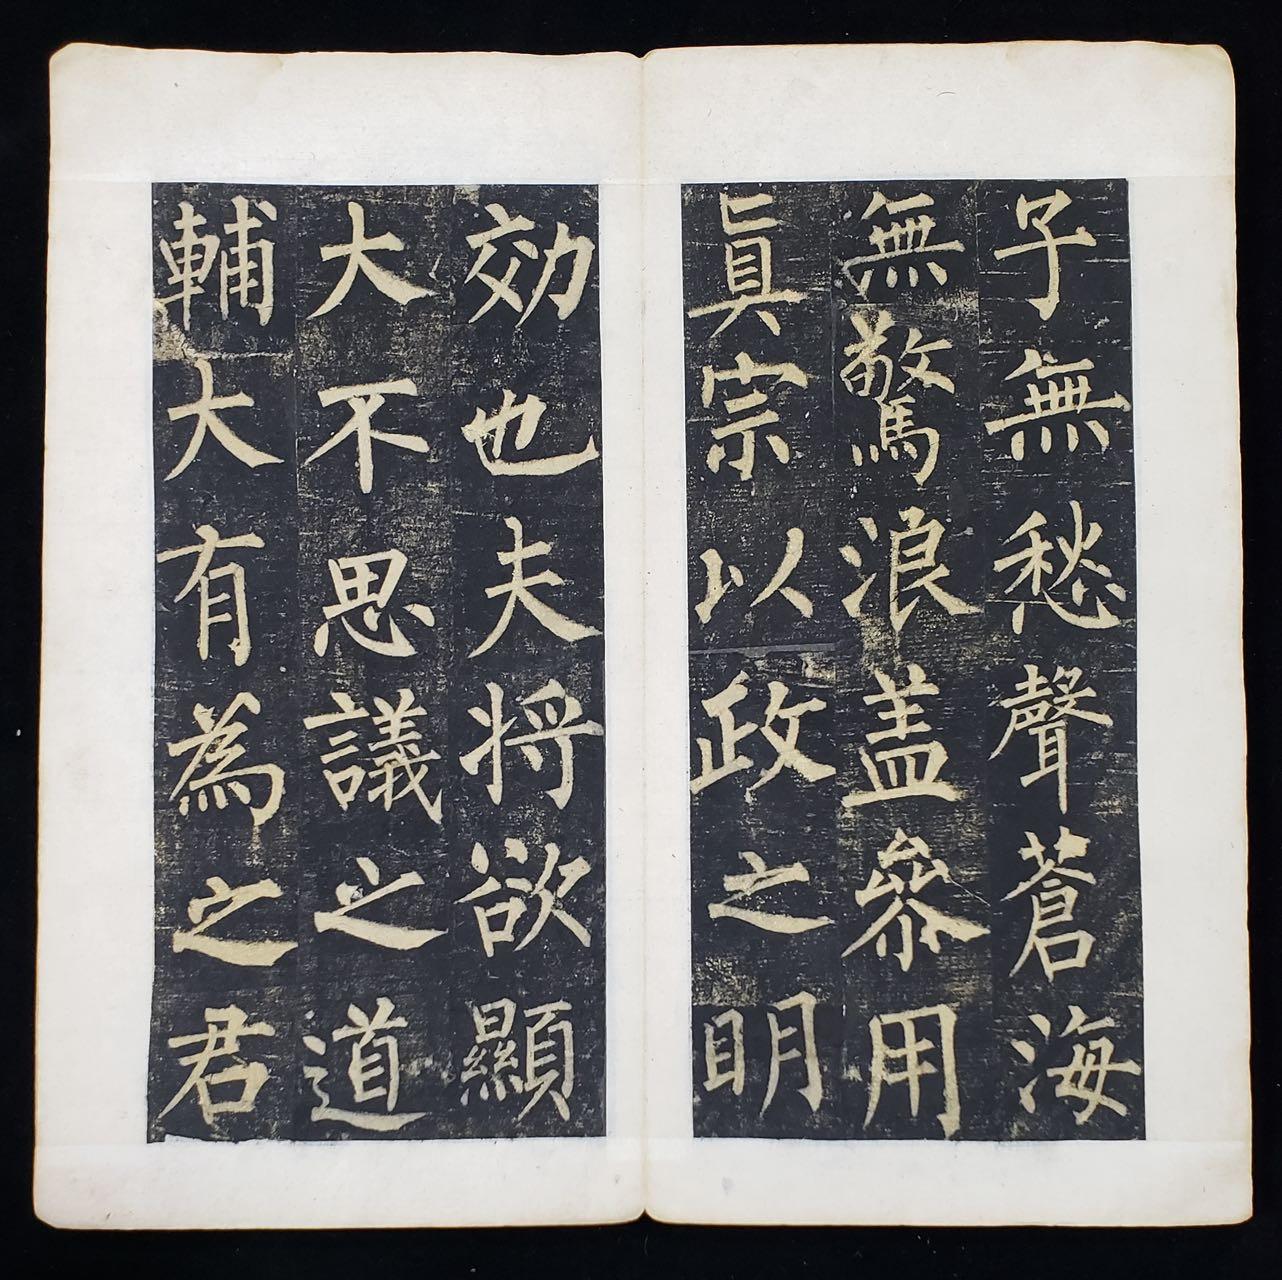 子無愁聲蒼海
無驚浪盖叅用
眞宗以政之明
効也夫将欲顯
大不思議之道
輔大有為之君